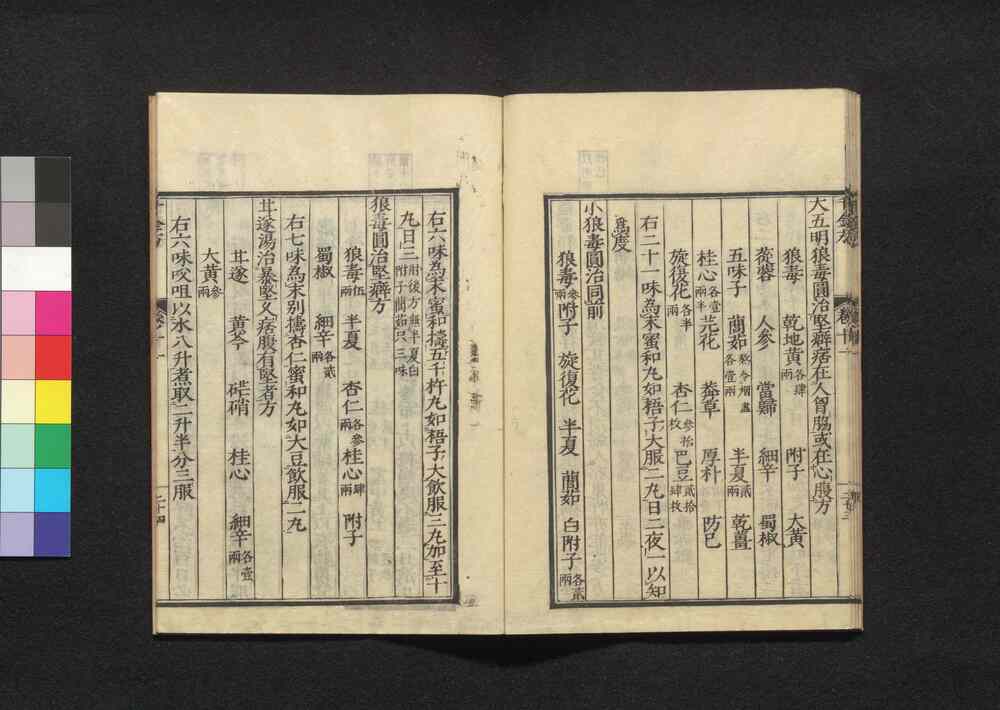 大五明狼毒圓治堅癖痞在人胷脇或在心腹方
狼毒 乾地黄各肆兩 附子 大黄
蓯蓉 人參 當歸 細辛 蜀椒
五味子 蕳茹炙令烟盡各壹兩 半夏貳兩 乾薑
桂心各壹兩半 芫花 莽草 厚朴 防己
旋復花各半兩 杏仁參拾枚 巴豆貳拾肆枚
右二十一味為末蜜和丸如梧子大服二丸日二夜一以知
爲度
小狼毒圓治同前
狼毒參兩 附子 旋復花 半夏 蕳茹 白附子各貳兩
右六味為末蜜和擣五千杵丸如梧子大飲服三丸加至十
丸日三肘後方無半夏白附子蕳茹只三味
狼毒圓治堅癖方
狼毒伍兩 半夏 杏仁各參兩 桂心肆兩 附子
蜀椒 細辛各貳兩
右七味為末别擣杏仁蜜和丸如大豆飲服二丸
甘遂湯治暴堅久痞腹有堅者方
甘遂 黄芩 芒硝 桂心 細辛各壹兩
大黄參兩
右六味㕮咀以水八升煮取二升半分三服